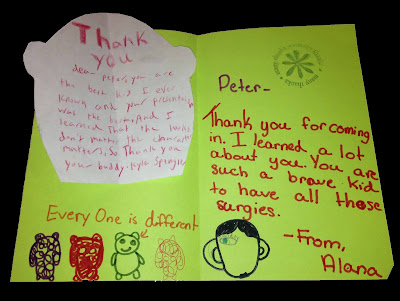 Thank
you
dear peter, you are
the best kid I ever
known and your presentation
was the bomb. And I
learned that the looks
don't matter the character
matters, So Thank you
your buddy. Kyle
Every One is different
Peter-
Thank you for coming
in. I learned a lot
about you. You are
such a brave kid
to have all those
surgies.
-From,
Alana